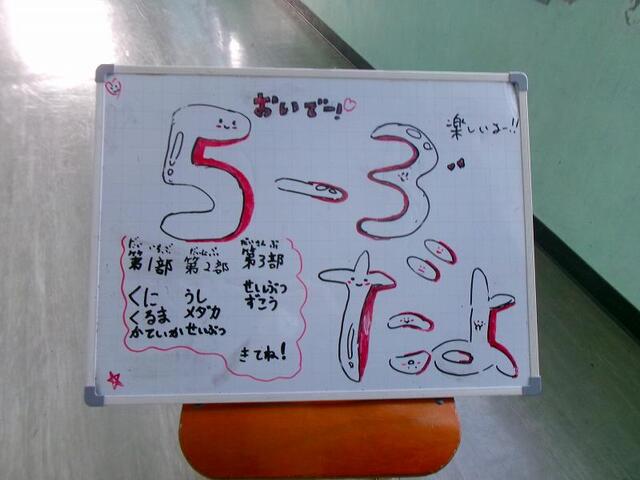 おいでー!
楽しいよー!!
5-3
だよ
だいいちぶ だいにぶ だいさんぶ
第1部 第2部 第3部
くに うし せいぶつ
くるま メダカ ずこう
かていか せいぶつ
きてね!